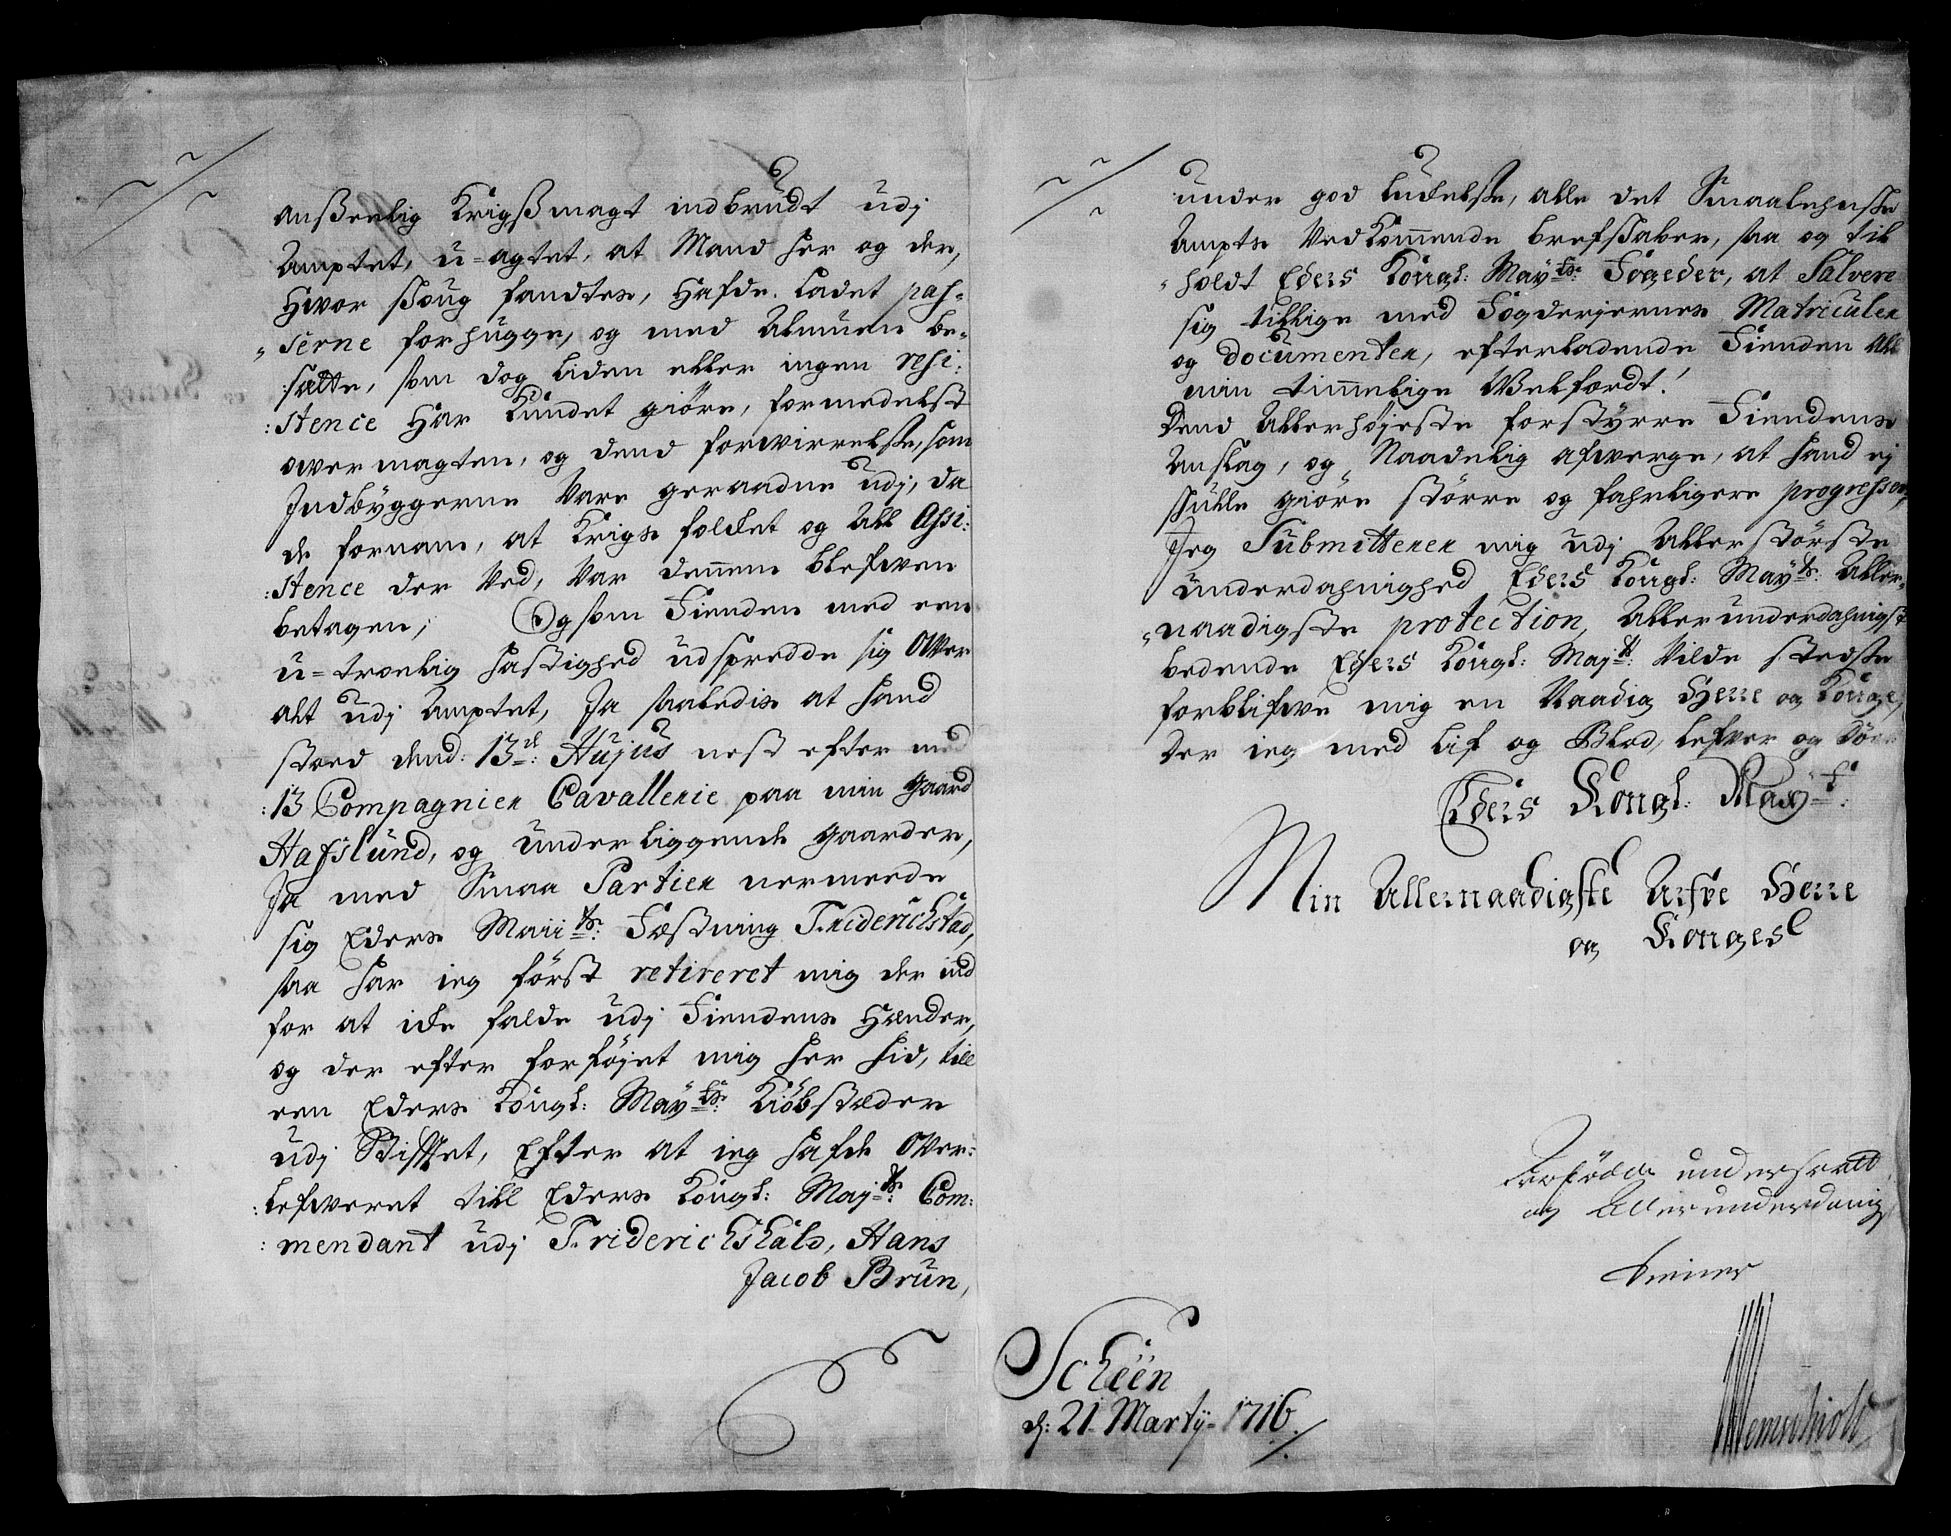 anßeelig Krigßmagt indbrudt udj
Amptet, u-agtet, at Mand her og der,
hvor skoug fandtes, hafde ladet pas-
"serne forhugge, og med Almuen be-
:satte, som dog liden eller ingen resi:
:stence har kundet giöre, formedelst
overmagten, og dend forvirrelse, som
Indbyggerne vare geraadne udj, da
de fornam, at Krigs folket og all Assi:
:stence der ved, var dennem blefven
betagen; Og som Fienden med een
u-troelig hastighed udspredde sig over
alt udj Amptet, Ja saaledis at hand
stoed dend: 13de: Hujus nest efter med
:13 Compagnier Cavallerie paa min gaard
Hafslund, og underliggende gaarder,
Ja med Smaa Partier nermede
sig Eders Maiits: Fæstning Friderichstad,
saa har ieg först retireret mig der ind
for at icke falde udj Fiendens Hænder,
og der efter forföjet mig her hid, till
een Eders Kongl: Mayts: Kiöbstæder
udj Stifftet, Efter at ieg hafde over:
:lefveret till Eders Kongl: Majts: Com:
:mendant udj Friderichshald, Hans
Jacob Brun,
under god luckelse, alle det Smaalehnske
Ampts vedkommende brefskaber, saa og til
"holdt Eders Kongl: Mayts: Fogeder, at Salvere
sig tillige med Fogderjernes Matriculer
og documenter, efterladende Fienden all
min timmelige Velfærdt!
Dend Allerhöjeste forstyrre Fiendens
Anslag, og Naadelig afverge, at hand ej
skulle giöre större og fahrligere progresser,
Jeg Submitterer mig udj Allerstörste
underdahnighed Eders Kongl: Mayts: Aller-
"naadigste protection, Allerunderdahnigst
bedende Eders Kongl: Majt: vilde stedse
forblifve mig en Naadig Herre og Konge,
der ieg med lif og Blod, lefver og döer
Eders Kongl: Mayt:
Min Allernaadigste Arfve Herre
og Konges
Arfödde undersaatt
og Allerunderdanig
tienner
Scheen
d: 21 Martij 1716.